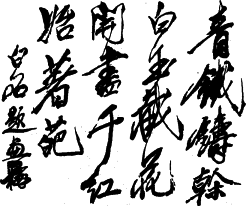 青鐵鑄幹
白玉裁花
開盡千紅
始著葩
白石題画梅